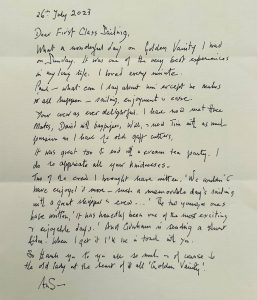 26th July 2023
Dear First Class Sailing,
What a wonderful day on Golden Vanity I had
on Sunday. It was one of the very best experiences
in my long life. I loved every minute.
Paul – what can I say about him except he makes
it all happen – sailing, enjoyment &
Your crew as ever delightful. I have now met three
Mates, David with bagpipes, Will, & now Tim with as much
passion as I have for old gaff cutters,
It was great too to end with a cream tea party. I
do so appreciate all your kindnesses.
Two of the crew I brought have written. 'We couldn't
have enjoyed it more – such a memorable day's sailing
with a great skipper & crew...' The two younger ones
have written 'it was honestly been one of the most exciting
& enjoyable days.' And is sending a short
film. When I get it I'll be in touch with you.
So thank you to you all so much – & of course to
the old lady at the heart of it all 'Golden Vanity'.